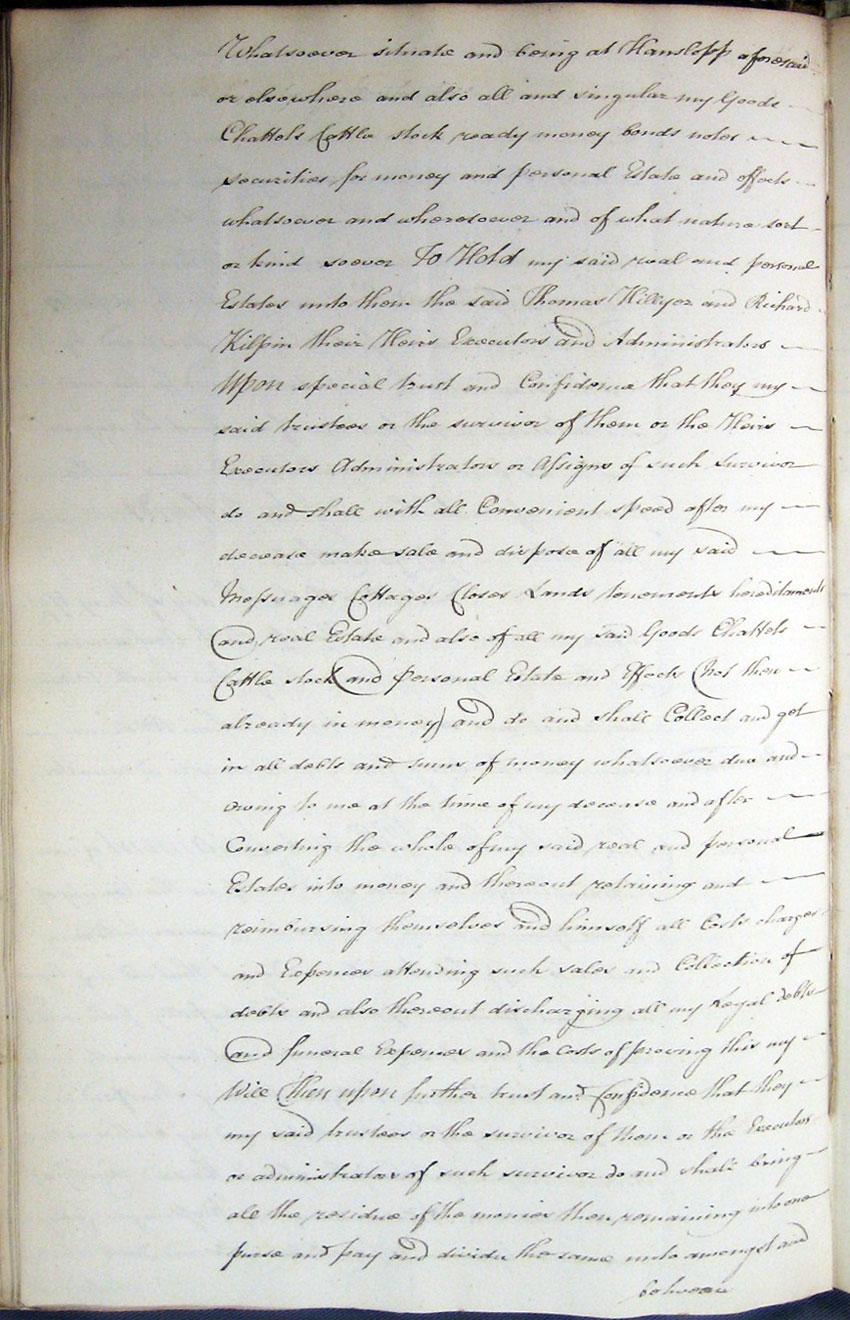 Whatsoever situate and being at Hanslopp aforesaid
or elsewhere and also all and singular my Goods
Chattels Cattle stock ready money bonds notes
securities for money and personal Estate and effects
whatsoever and wheresoever and of what nature sort
or kind soever To Hold my said real and personal
Estates unto them the said Thomas Hillyer and Richard
Kilpin their Heirs Executors and Administrators
Upon special trust and Confidence that they my
said trustees or the survivor of them or the Heirs
Executors Administrators or Assigns of such survivor
do and shall with all Convenient speed after my
decease make sale and dispose of all my said
Messuages Cottages Closes Lands tenements hereditaments
and real Estate and also of all my said Goods Chattels
Cattle stock and personal Estate and Effects (Not then
already in money) and do and shall Collect and get
in all debts and sums of money whatsoever due and
owing to me at the time of my decease and after
Converting the whole of my said real and personal
Estates into money and thereout retaining and
reimbursing themselves and himself all Costs charges
and Expences attending such sales and Collection of
debts and also thereout discharging all my Legal debts
and funeral Expences and the Costs of proving this my
Will Then upon further trust and Confidence that they
my said trustees or the survivor of them or the Executors
or administrators of such survivor do and shall bring
all the residue of the monies then remaining into one
purse and pay and divide the same unto amongst and
between